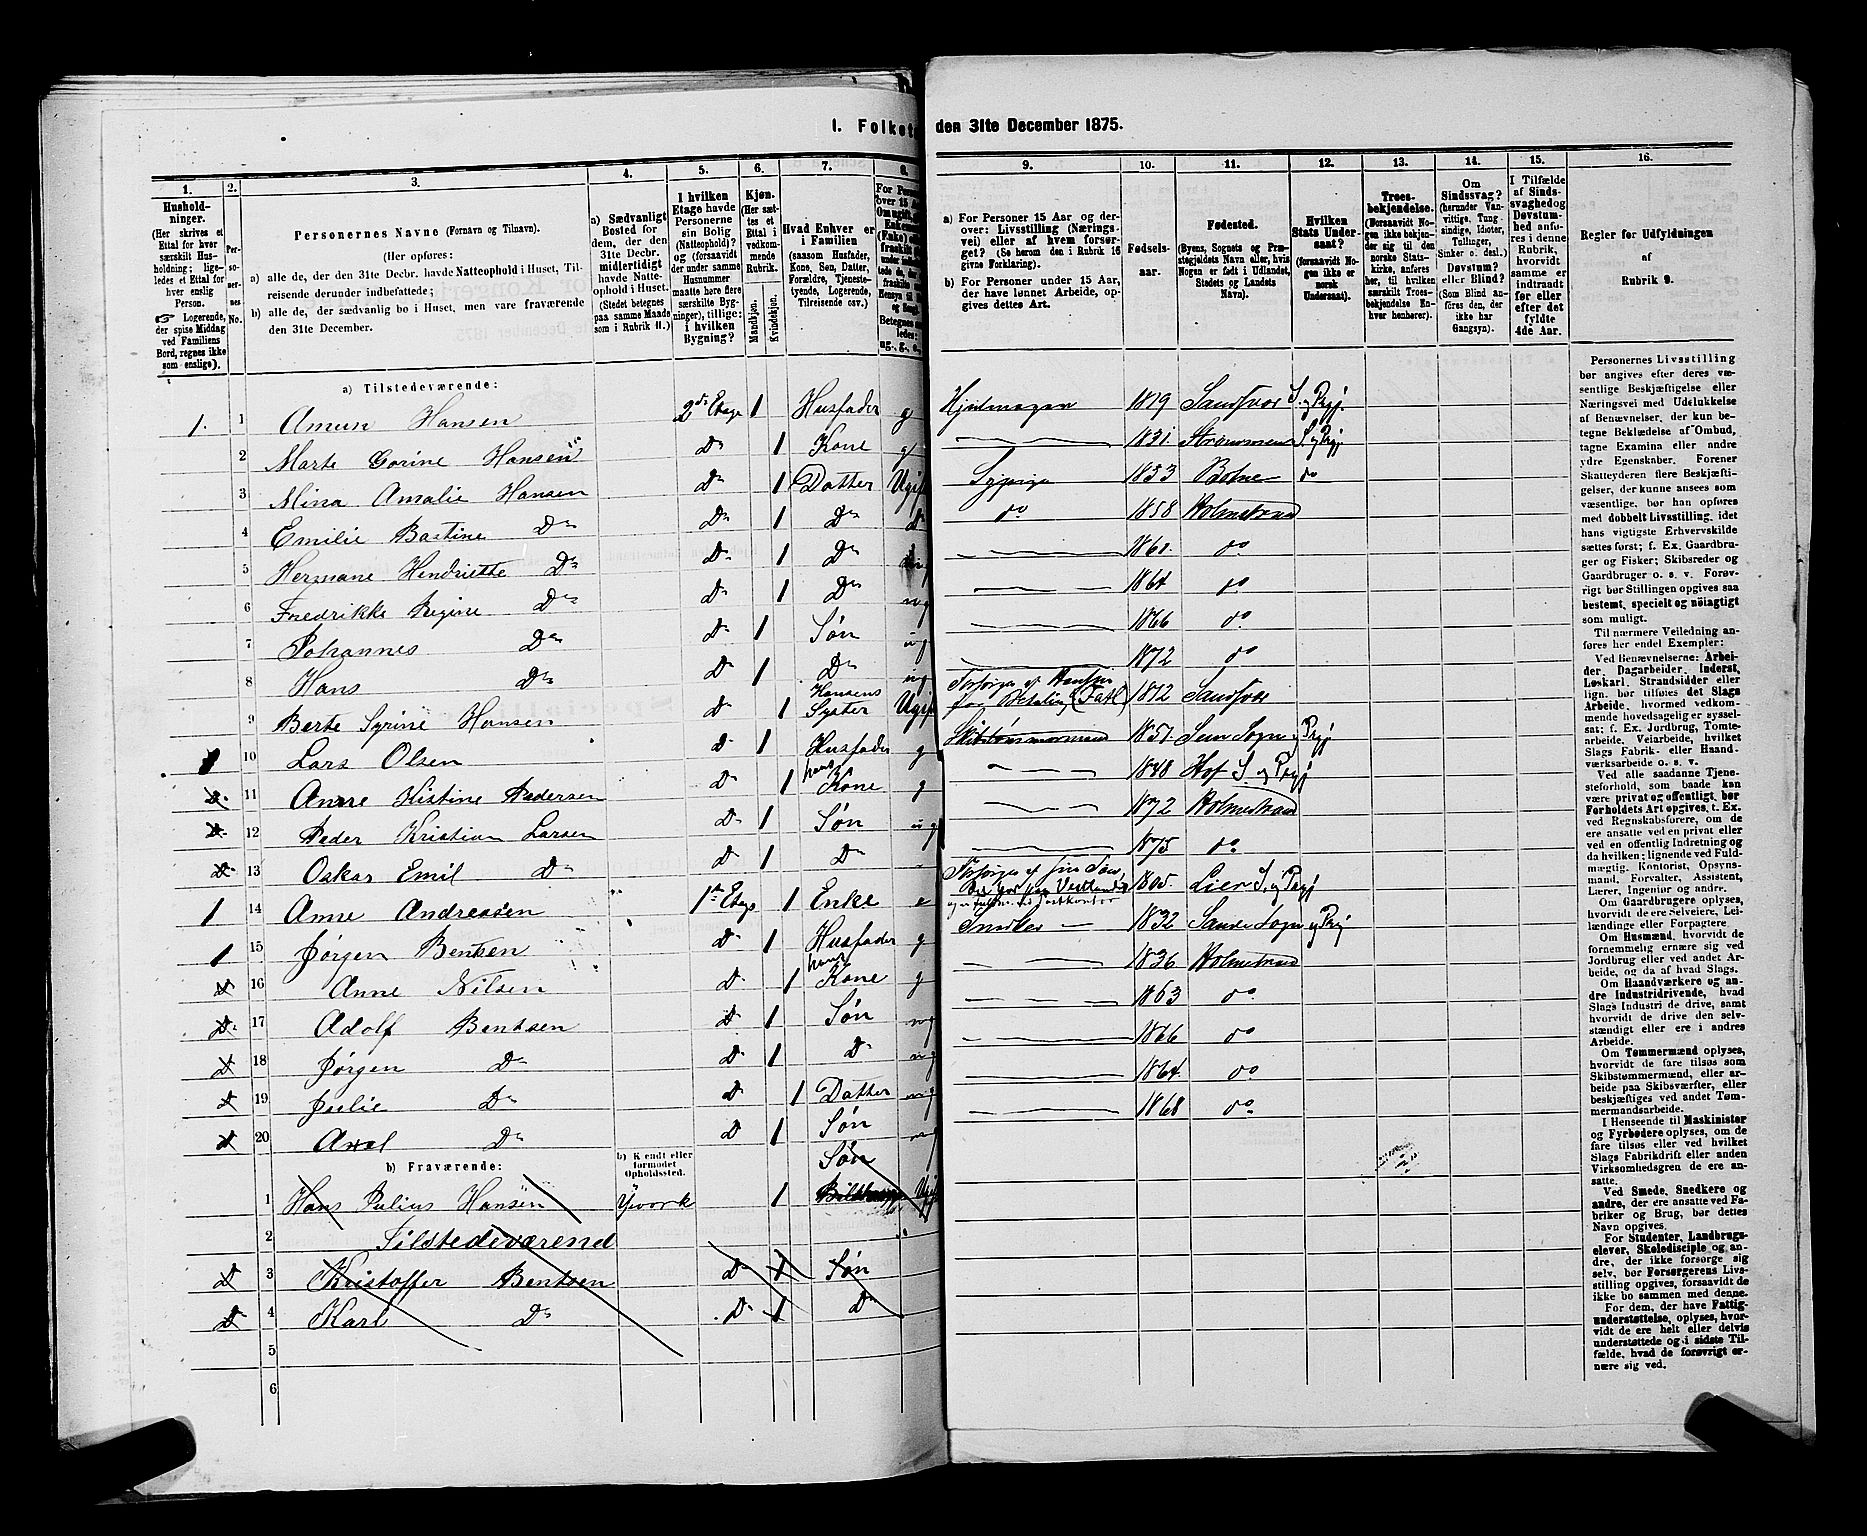 1. Folket
den 31te December 1875.
1. 2. 3. 4. 5. 6. 7. 8.
Hushold-
ninger.
(Her skrives et
Ettal for hver
særskilt Hus-
holdning; lige-
ledes et Ettal for
hver enslig
Person.
☞ Logerende,
der spise Middag
ved Familiens
Bord, regnes ikke
som enslige).
Per-
so-
ner-
nes
No.
Personernes Navne (Fornavn og Tilnavn).
(Her opføres:
a) alle de, der den 31te Decbr. havde Natteophold i Huset, Til-
reisende derunder indbefattede;
b) alle de, der sædvanlig bo i Huset, men vare fraværende
den 31te December.
a) Sædvanligt
Bosted for
dem, der den
31te Decbr.
midlertidigt
havde Natte-
ophold i Huset.
(Stedet betegnes
paa samme Maade
som i Rubrik 11.)
I hvilken
Etage havde
Personerne
sin Bolig
(Natteophold)?
og (forsaavidt
der under samme
Husnummer
maatte høre flere
særskilte Byg-
ninger), tillige:
i hvilken
Bygning?
Kjøn.
(Her sæt-
tes et
Ettal i
vedkom-
mende
Rubrik.
Mandkjøn.
Kvindekjøn.
Hvad Enhver er
i Familien
(saasom Husfader,
Kone, Søn, Datter,
Forældre, Tjeneste-
tyende, Logerende,
Tilreisende osv.)
9. 10. 11. 12. 13. 14. 15. 16.
a) For Personer 15 Aar og der-
over: Livsstilling (Nærings-
vei) eller af hvem forsør-
get? (Se herom den i Rubrik 16
givne Forklaring).
b) For Personer under 15 Aar,
der have lønnet Arbeide, op-
gives dettes Art.
Fødsels-
aar.
Fødested.
(Byens, Sognets og Præ-
stegjeldets Navn eller, hvis
Nogen er født i Udlandet,
Stedets og Landets
Navn).
Hvilken
Stats Under-
saat?
(forsaavidt No-
gen ikke er
norsk
Undersaat).
Troes-
bekjendelse.
(Forsaavidt No-
gen ikke bekjen-
der sig til den
norske Stats-
kirke, anføres
her, til hvilken
særskilt Troes-
bekjendelse En-
hver henhører).
Om
Sindssvag?
(herunder Van-
vittige, Tung-
sindige, Idioter,
Tullinger,
Sinker o. desl.)
Døvstum?
eller Blind?
(Som Blind an-
føres den, der
ikke har
Gangsyn).
I Tilfælde
af Sinds-
svaghed og
Døvstum-
hed anfø-
res i denne
Rubrik,
hvorvidt
samme er
indtraadt
før eller
efter det
fyldte
4de Aar.
Regler for Udfyldningen
af
Rubrik 9.
a) Tilstedeværende:
1. 1 Amun Hansen 2den Etage 1 Husfader g Hjulmager 1819 Sandsvær S. og Prgj.
2 Marte Gorine Hansen Do 1 Kone g 1831 Strømmen S. og Prgj
3 Mina Amalie Hansen Do 1 Datter Ugif Sypige 1853 Botne do
4 Emilie Bastine Do Do 1 Do D do 1858 Holmestrand
5 Hermane Henriette Do Do 1 Do 1861. do
6 Fredrikke Regine Do Do 1 Do ug 1864 do
7 Johannes Do Do 1 Søn ug 1866 do
8 Hans Do Do 1 Do ug 1872 do
9 Berte Syrine Hansen Do 1 Hansens Syster Ugif Forsørges af 1812 Sandsvær
10 Lars Olsen Do 1 Husfader g Skibstømmermand 1851. Sem Sogn og Prgj
Do 11 Anne Kistine Pedersen Do 1 hans Kone g 1848 Hof S. og Prgj
Do 12 Peder Kristian Larsen Do 1 Søn ug 1872 Holmestrand
Do 13 Oskar Emil Do Do 1 Do 1875 do
1 14 Anne Andreasen 1ste Etage 1 Enke e Forsørges af sin Søn, 1805. Lier S. og Prgj
1 15 Jørgen Bentsen Do 1 Husfader g Snedker 1832 Sande Sogn og Prgj
Do 16 Anne Nilsen Do 1 hans Kone g 1836 Holmestrand
Do 17 Adolf Bentsen Do 1 Søn ug 1863 do
Do 18 Jørgen Do Do 1 Do ug 1866 do
Do 19 Julie Do Do 1 Datter ug 1864. do
Do 20 Axel Do Do 1 Søn ug 1868 do
b) Fraværende:
b) Kjendt eller
formodet
Opholdssted.
1 Hans Julius Hansen Yvork 1 Søn Ugif
2 Tilstedeværend
Do 3 Kristoffer Bentsen Do 1 Søn
Do 4 Karl Do Do 1 Do
5
6
Personernes Livsstilling
bør angives efter deres væ-
sentlige Beskjæftigelse eller
Næringsvei med Udelukkelse
af Benævnelser, der kun be-
tegne Beklædelse af Ombud,
tagne Examina eller andre
ydre Egenskaber. Forener
Skatteyderen flere Beskjæfti-
gelser, der kunne ansees som
væsentlige, bør han opføres
med dobbelt Livsstilling, idet
hans vigtigste Erhvervskilde
sættes først; f. Ex. Gaardbru-
ger og Fisker; Skibsreder og
Gaardbruger o. s. v. Forøv-
rigt bør Stillingen opgives saa
bestemt, specielt og nöiagtigt
som muligt.
Til nærmere Veiledning an-
føres her endel Exempler:
Ved Benævnelserne: Arbei-
der, Dagarbeider, Inderst,
Løskarl, Strandsidder eller
lign. bør tilføies det Slags
Arbeide, hvormed vedkom-
mende hovedsagelig er syssel-
sat; f. Ex. Jordbrug, Tomte-
arbeide, Veiarbeide, hvilket
Slags Fabrik- eller Haand-
værksarbeide o. s. v.
Ved alle saadanne Tjene-
steforhold, som baade kan
være privat og offentligt, bør
Forholdets Art opgives, t. Ex.
ved Regnskabsførere, om de
ere ansatte ved en privat eller
ved en offentlig Indretning og
da hvilken; lignende ved Fuld-
mægtig, Kontorist, Opsyns-
mand, Forvalter, Assistent,
Lærer, Ingeniør og andre.
Om Gaardbrugere oplyses,
hvorvidt de ere Selveiere, Lei-
lændinge eller Forpagtere.
Om Husmænd, hvorvidt de
fornemmelig ernære sig ved
Jordbrug eller ved andet Ar-
beide, og da af hvad Slags.
Om Haandværkere og an-
dre Industridrivende, hvad
Slags Industri de drive, samt
hvorvidt de drive den selv-
stændigt eller ere i andres
Arbeide.
Om Tømmermænd oplyses,
hvorvidt de fare tilsøs som
Skibstømmermænd, eller ar-
beide paa Skibsværfter, eller
beskjæftiges ved andet Tøm-
mermandsarbeide.
I Henseende til Maskinister
og Fyrbødere oplyses, om de
fare tilsøs eller ved hvilket
Slags Fabrikdrift eller anden
Virksomhedsgren de ere an-
satte.
Ved Smede, Snedkere og
andre, der ere ansatte ved Fa-
briker og Brug, bør dettes
Navn opgives.
For Studenter, Landbrugs-
elever, Skoledisciple og an-
dre, der ikke forsørge sig
selv, bør Forsørgerens Livs-
stilling opgives, forsaavidt de
ikke bo sammen med denne.
For dem, der have Fattig-
understøttelse, oplyses, hvor-
vidt de ere helt eller delvis
understøttede og i sidste Til-
fælde, hvad de forøvrigt er-
nære sig ved.